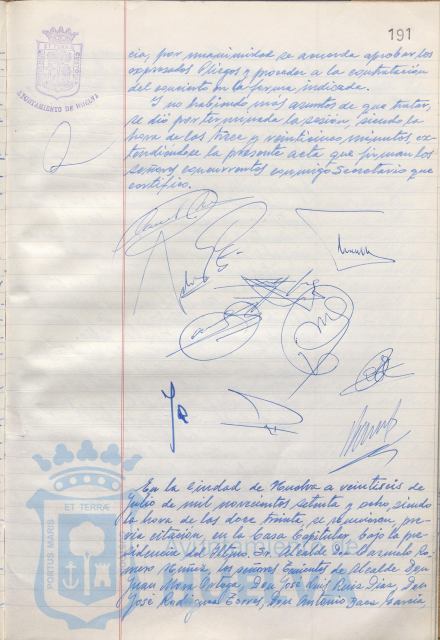 191
AYUNTAMIENTO DE HUELVA
cia, por unanimidad se acuerda aprobar los
expresados Pliegos y proceder a la contratación
del concierto en la forma indicada.
Y no habiendo mas asuntos de que tratar,
se dió por terminada la sesión, siendo la
hora de las trece y veinticinco minutos, ex-
tendiéndose la presente acta que firman los
señores concurrentes conmigo Secretario que
certifico.
En la ciudad de Huelva a veintiseis de
Julio de mil novecientos setenta y ocho, siendo
la hora de las doce treinta, se reunieron, pre-
via citación, en la Casa Capitular, bajo la pre-
sidencia del Iltmo. Sr. Alcalde D. Carmelo Ro-
mero Núñez, los señores Tenientes de Alcalde Don
Juan Mora Ortega, Don José Luis Ruiz Díaz, Don
José Rodríguez Torres, Don Antonio García,
PORTUS MARIS
ET TERRÆ